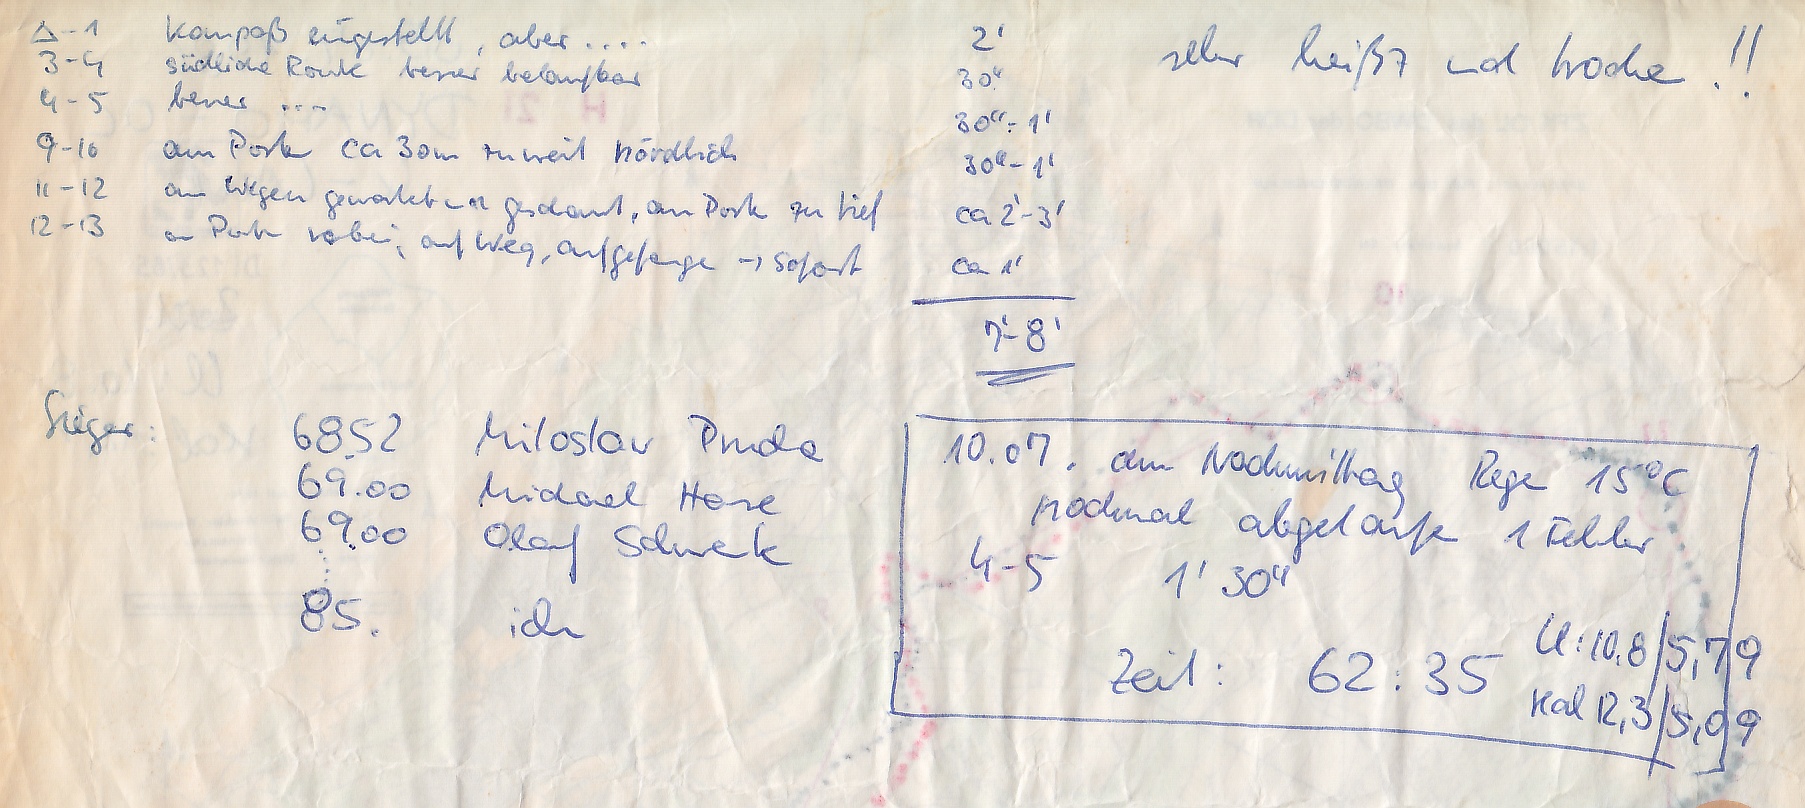 △-1 Kompaß eingestellt, aber .... 2'
3-4 südliche Route besser belaufbar 30"
4-5 besser .... 30"-1'
9-10 am Posten ca 30m zu weit nördlich 30"-1'
11-12 an Wegen gewartet und geschaut, am Posten zu tief ca 2'-3'
12-13 an Posten vorbei, auf Weg, aufgefangen → sofort ca 1'
7'-8'
sehr heiß und trocken !!
Sieger: 68.52 Miloslav
69.00 Michael
69.00 Olaf
85. ich
10.07. am Nachmittag Regen 15°C
nochmal abgelaufen 1 Fehler
4-5 1' 30"
Zeit: 62:35
: 10.8 / 5,79
12,3 / 5,09
H 21